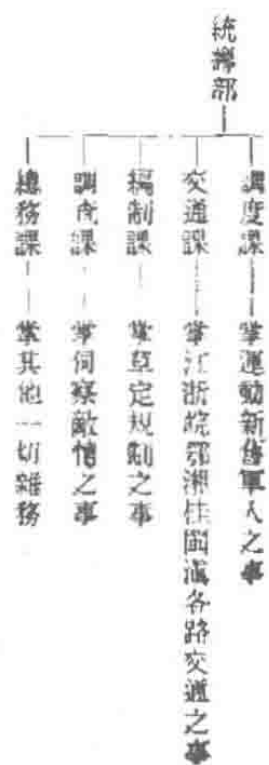 統籌部
調度課——掌運動新舊軍人之事
交通課——掌江浙皖鄂湘桂閩滇各路交通之事
編制課——掌草定規則之事
調查課——掌伺察敵情之事
總務課——掌其他一切雜務